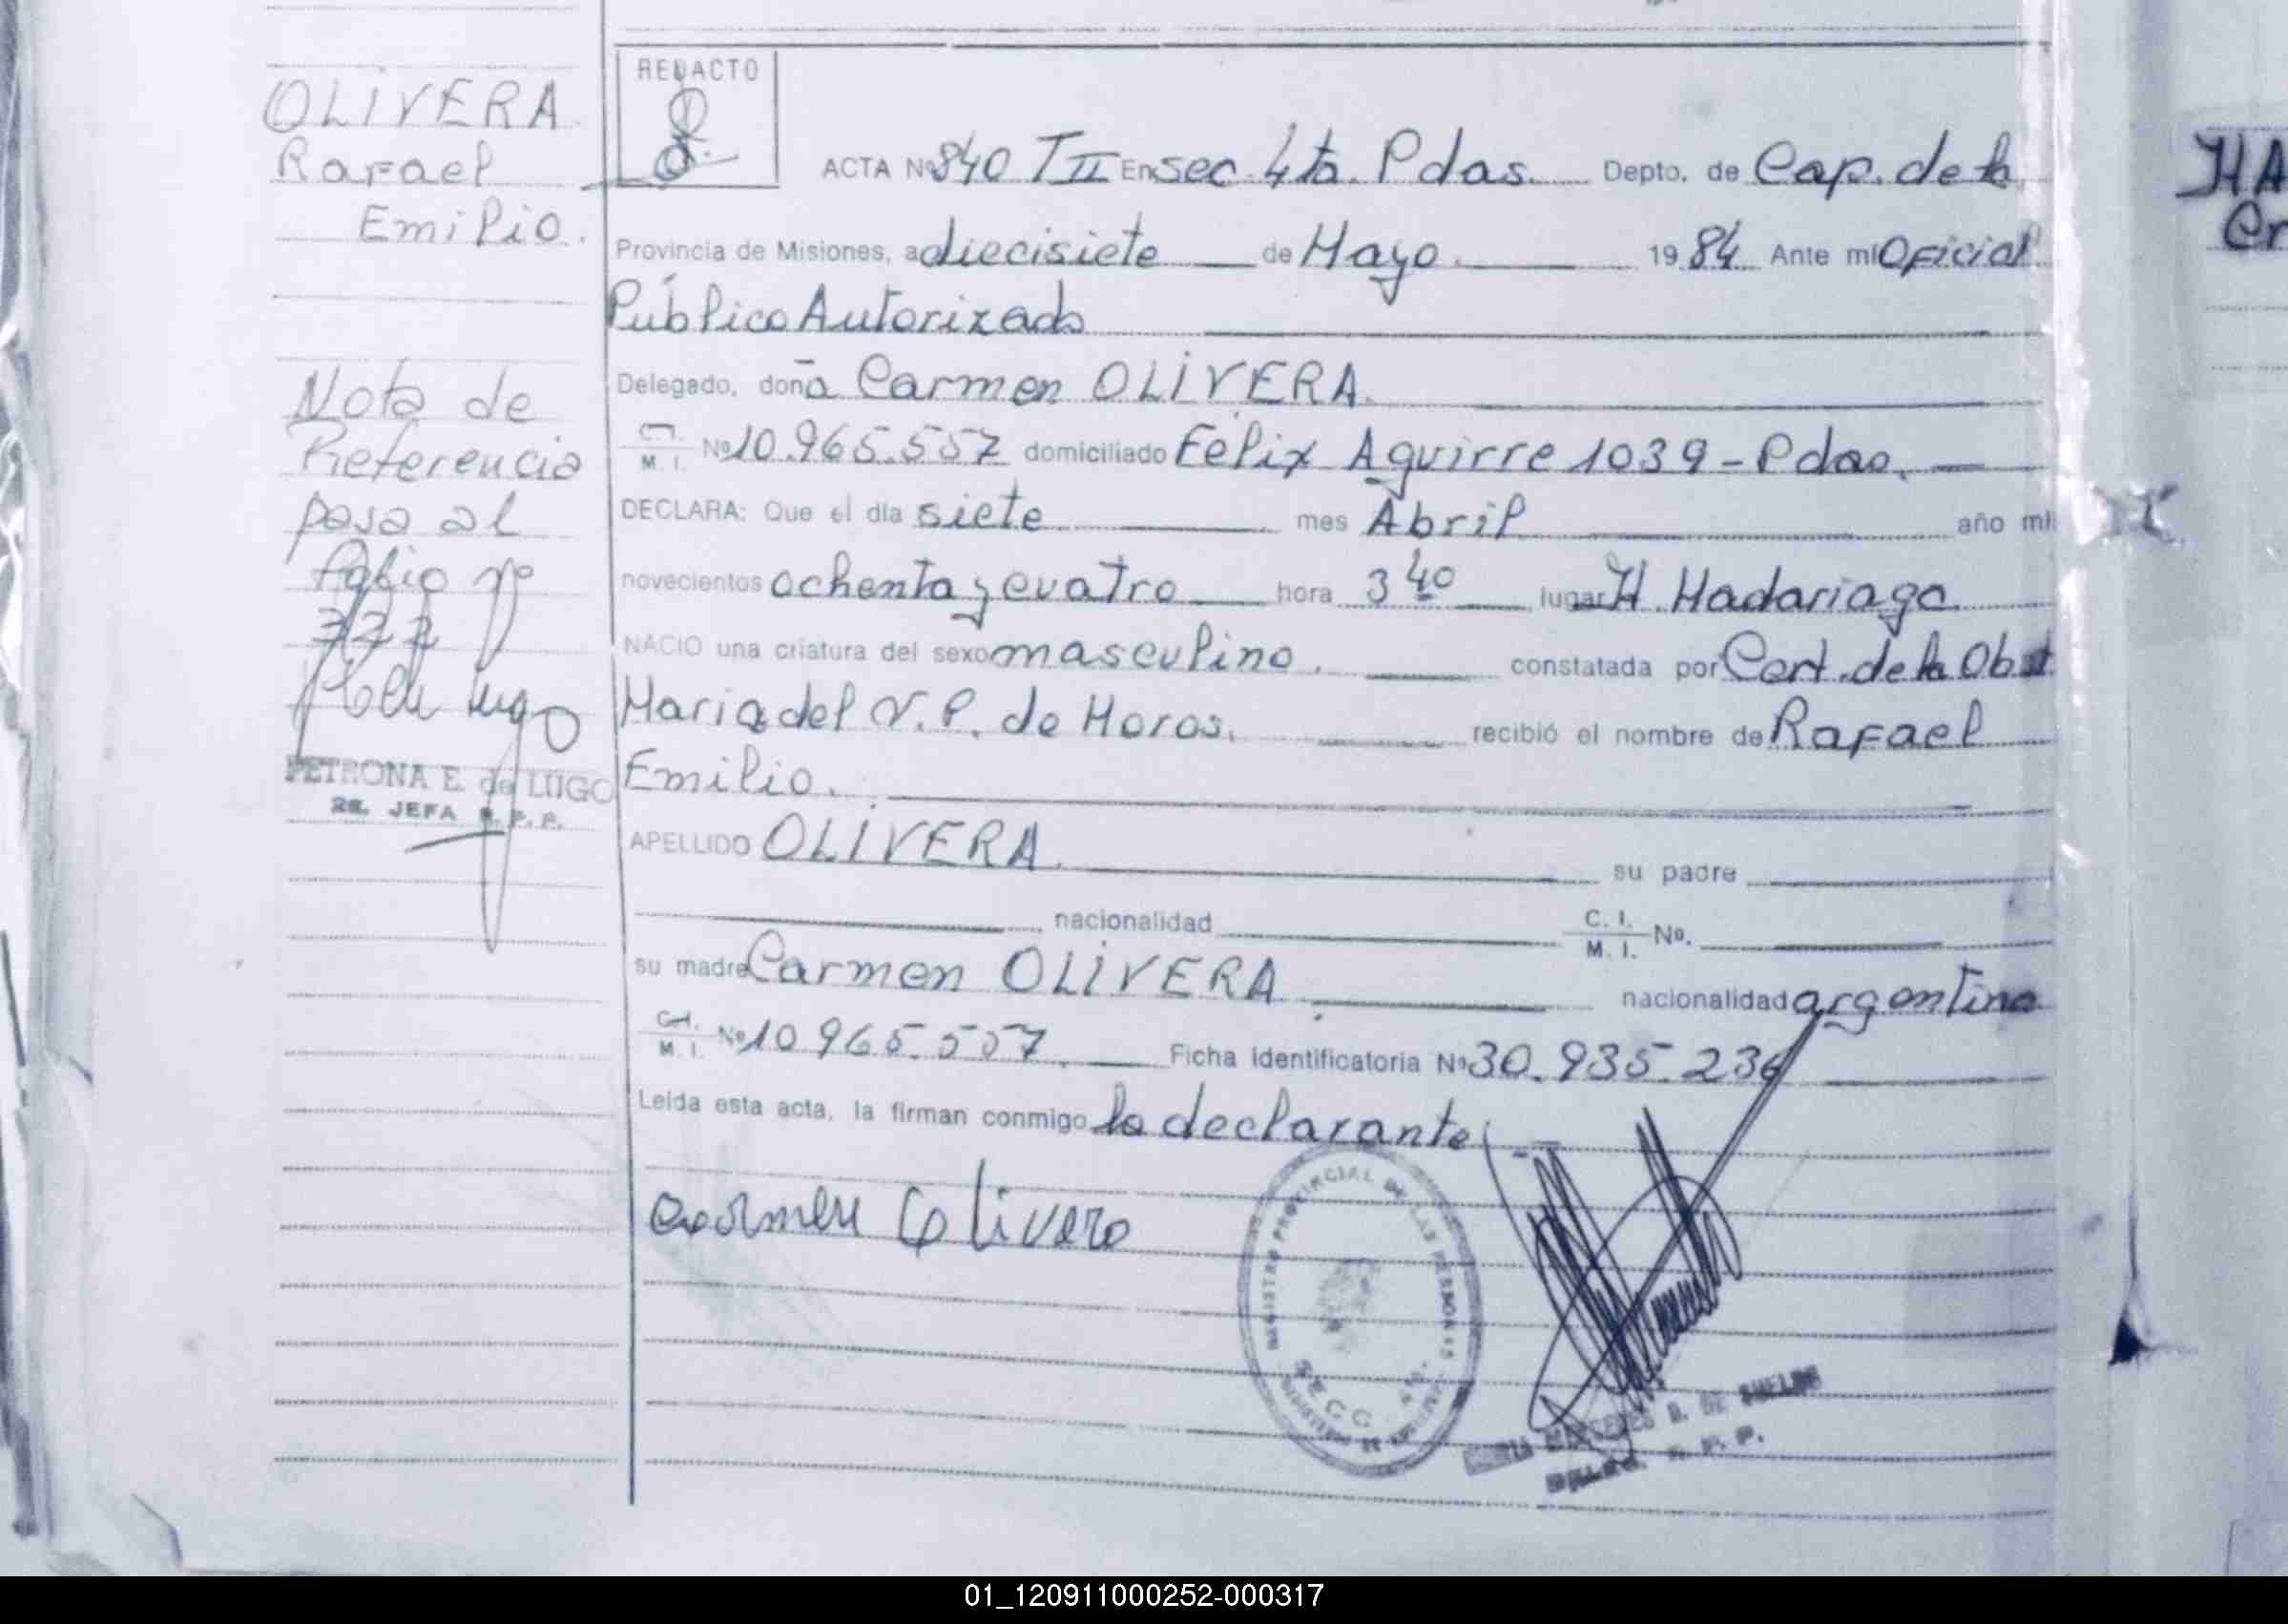 OLIVERA
Rafael
Emilio.
Nota de
Referencia
pasa al
folio nº
PETRONA E. de LUGO
2a. JEFA R. P. P.
REDACTO
ACTA Nº 840 T II En sec. 4ta. Pdas. Depto. de Cap. de la
Provincia de Misiones, a diecisiete de Mayo. 1984 Ante mí Oficial
Público Autorizado
Delegado, doña Carmen OLIVERA.
C. I. M. I. Nº 10.965.557 domiciliado Félix Aguirre 1039 - Pdas.
DECLARA: Que el día siete mes Abril año mil
novecientos ochenta y cuatro hora 3 40 lugar H. Madariaga
NACIO una criatura del sexo masculino. constatada por Cert. de la Obst
Maria del V. P. de Horos. recibió el nombre de Rafael
Emilio.
APELLIDO OLIVERA. su padre
nacionalidad C. I. M. I. Nº.
su madre Carmen OLIVERA nacionalidad argentina
C. I. M. I. Nº 10 965.557. Ficha identificatoria Nº 30.935.236
Leída esta acta, la firman conmigo la declarante
Carmen Olivera
REGISTRO PROVINCIAL DE LAS PERSONAS
SECC. 4ta.
HA
01_120911000252-000317